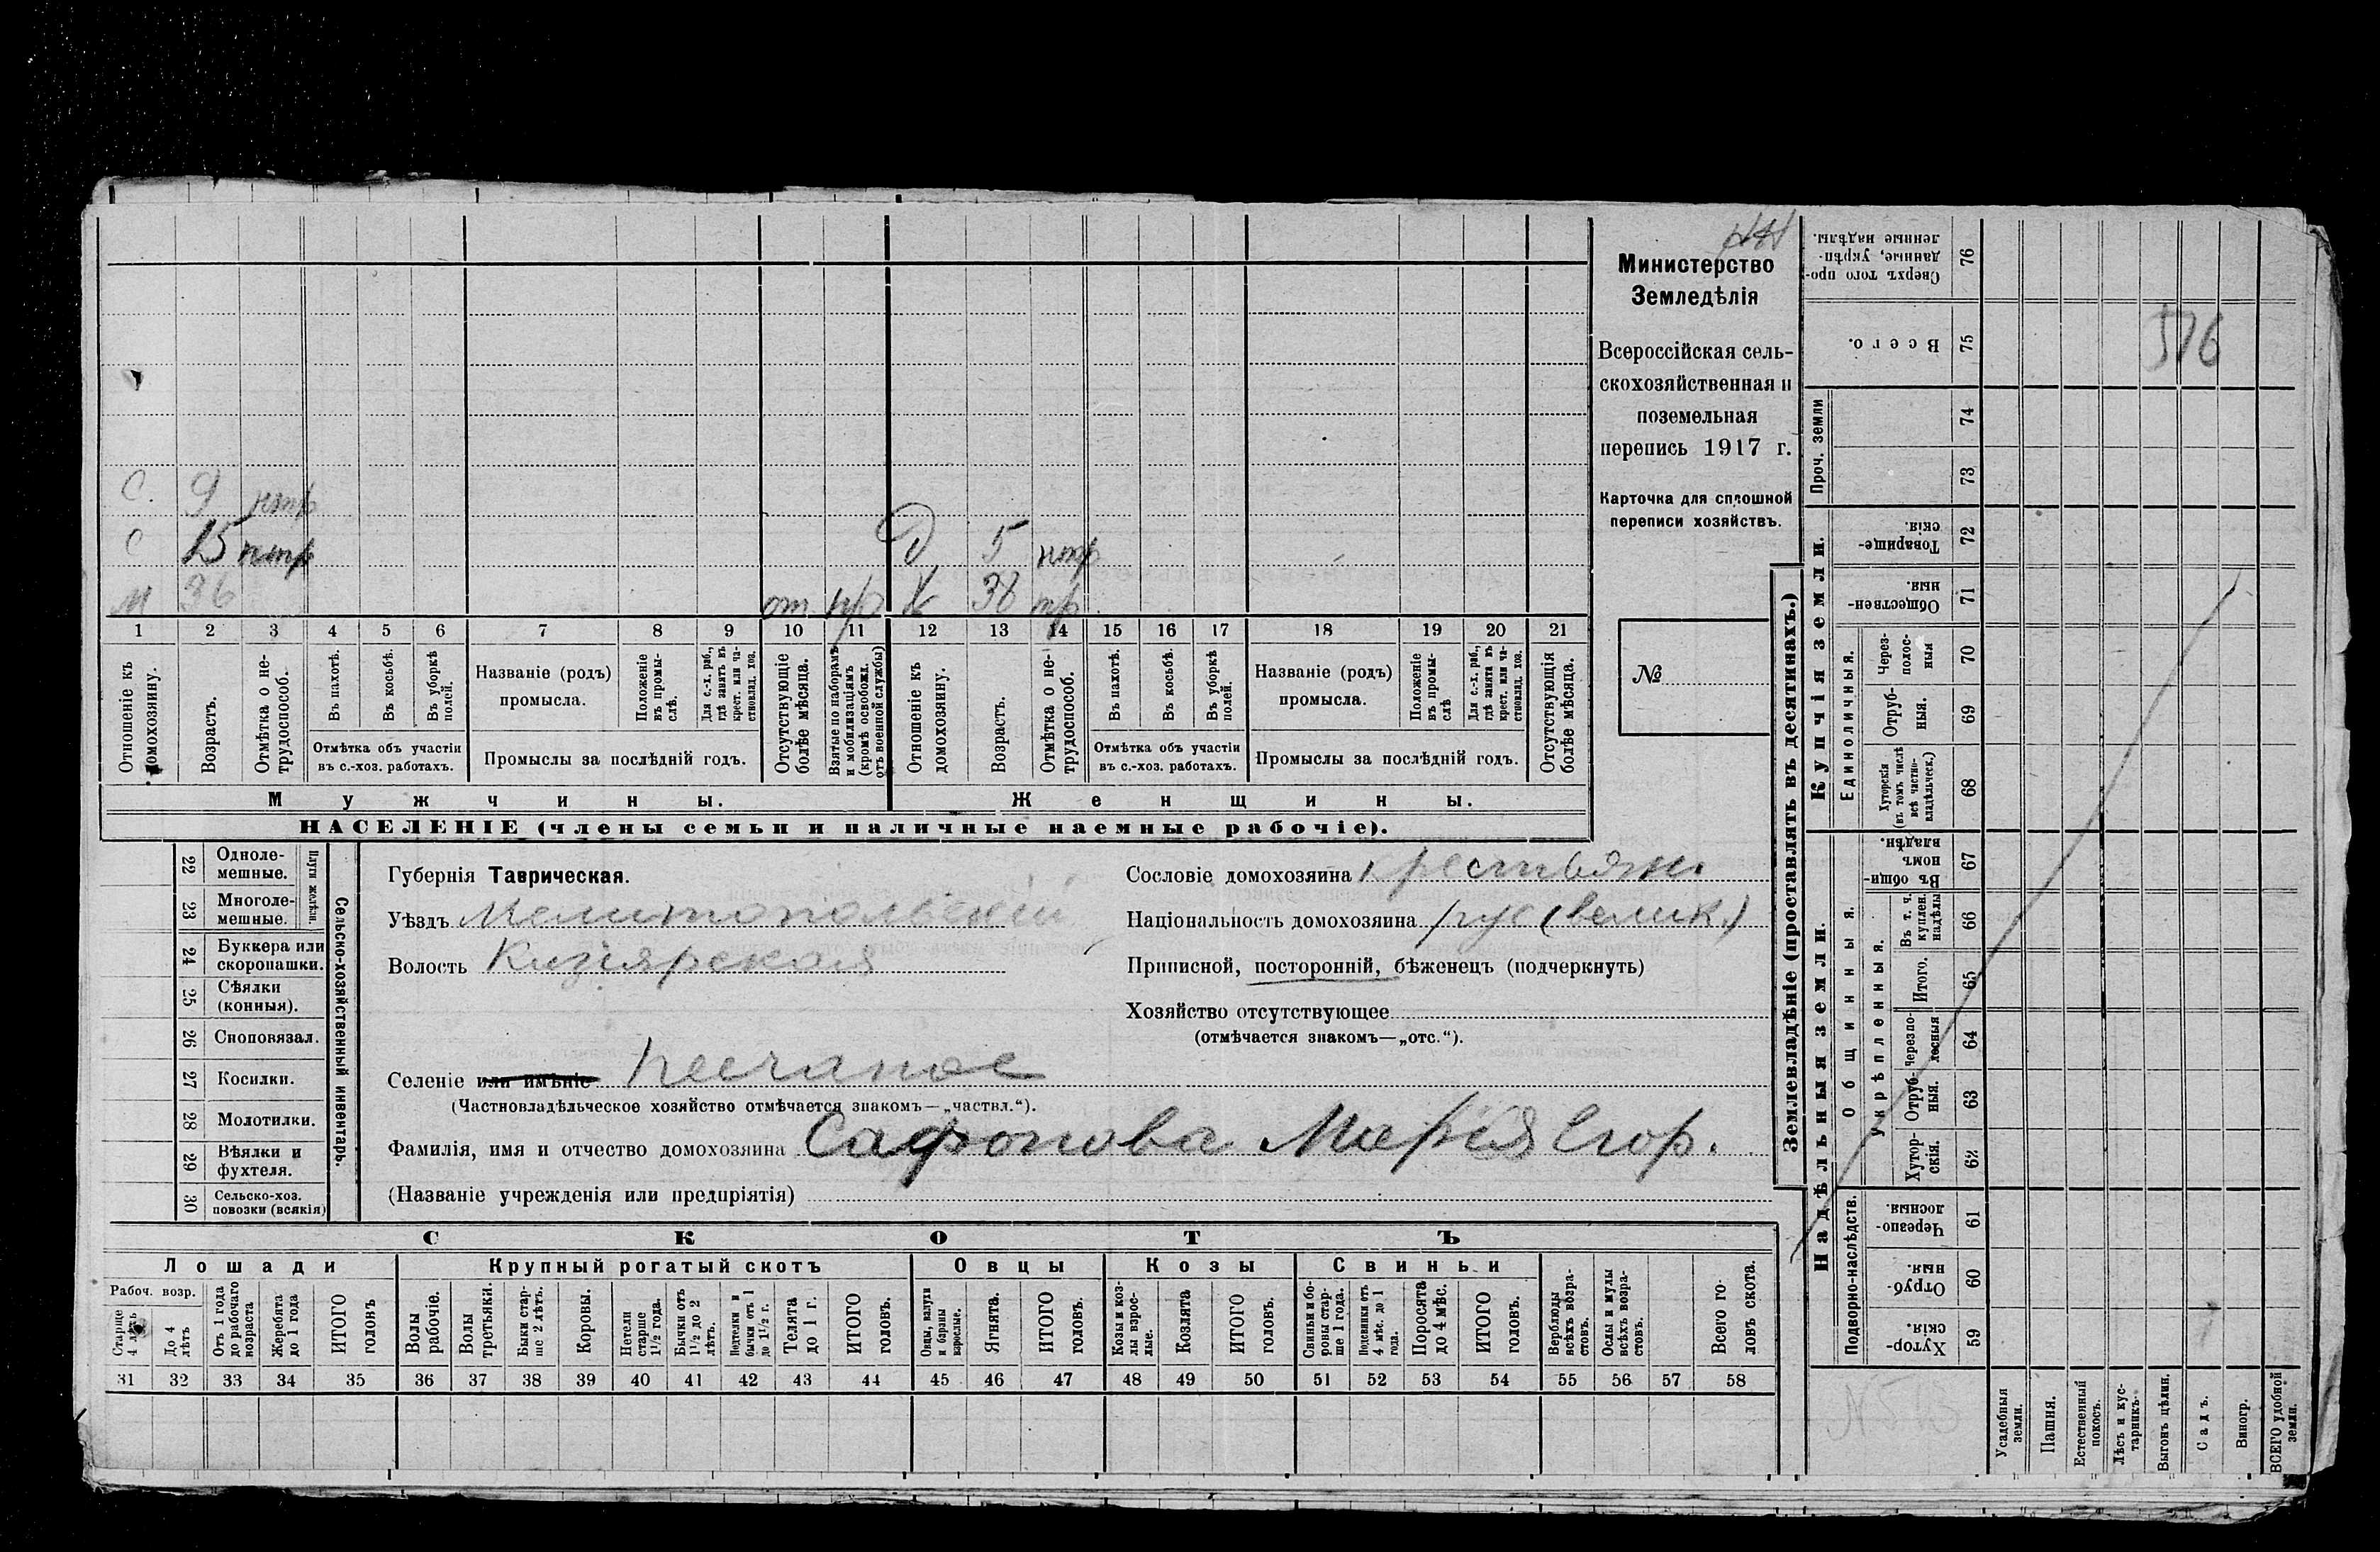 НН
Министерство
Земледѣлія
Всероссійская сель-
скохозяйственная и
поземельная
перепись 1917 г.
Карточка для сплошной
переписи хозяйствъ.
№
С. 9 нтр
С 15 нтр Д 5 нтр
М 36 от. пр Ж 38 пр.
1 2 3 4 5 6 7 8 9 10 11 12 13 14 15 16 17 18 19 20 21
Отношеніе къ домохозяину.
Возрастъ.
Отмѣтка о не-трудоспособ.
Въ пахотѣ.
Въ косьбѣ.
Въ уборкѣ полей.
Отмѣтка объ участіи
въ с.-хоз. работахъ.
Названіе (родъ)
промысла.
Положеніе въ промы-слѣ.
Для с.-х. раб., гдѣ занятъ въ крест. или ча-ствовлад. хоз.
Промыслы за послѣдній годъ.
Отсутствующіе болѣе мѣсяца.
Взятые по наборамъ и мобилизаціямъ (кромѣ освобожд. отъ военной службы)
Отношеніе къ домохозяину.
Возрастъ.
Отмѣтка о не-трудоспособ.
Въ пахотѣ.
Въ косьбѣ.
Въ уборкѣ полей.
Отмѣтка объ участіи
въ с.-хоз. работахъ.
Названіе (родъ)
промысла.
Положеніе въ промы-слѣ
Для с.-х. раб., гдѣ занята въ крест. или ча-ствовлад. хоз.
Промыслы за послѣдній годъ.
Отсутствующія болѣе мѣсяца.
Мужчины.
Женщины.
НАСЕЛЕНІЕ (члены семьи и наличные наемные рабочіе).
22 Одноле-мешные.
23 Многоле-мешные.
24 Буккера или скоропашки.
25 Сѣялки (конныя).
26 Сноповязал.
27 Косилки.
28 Молотилки.
29 Вѣялки и фухтеля.
30 Сельско-хоз. повозки (всякія)
Сельско-хозяйственный инвентарь.
Губернія Таврическая.
Уѣздъ Мелитопольскій
Волость Кизіярская
Сословіе домохозяина крестьян.
Національность домохозяина рус (велик.)
Приписной, посторонній, бѣженецъ (подчеркнуть)
Хозяйство отсутствующее
(отмѣчается знакомъ—„отс.“).
Селеніе или имѣніе Песчаное
(Частновладѣльческое хозяйство отмѣчается знакомъ—„частвл.“).
Фамилія, имя и отчество домохозяина Сафонова Марія Егор.
(Названіе учрежденія или предпріятія)
СКОТЪ
Лошади
Крупный рогатый скотъ
Овцы
Козы
Свиньи
Рабоч. возр.
Старше 4 лѣтъ
До 4 лѣтъ
Отъ 1 года до рабочаго возраста
Жеребята до 1 года
ИТОГО головъ
Волы рабочіе.
Волы третьяки.
Быки стар-ше 2 лѣтъ.
Коровы.
Нетели старше 1½ года.
Бычки отъ 1½ до 2 лѣтъ.
Подтелки и бычки отъ 1 до 1½ г.
Телята до 1 г.
ИТОГО головъ.
Овцы, валухи и бараны взрослые.
Ягнята.
ИТОГО головъ.
Козы и коз-лы взрос-лые.
Козлята
ИТОГО головъ.
Свиньи и бо-ровы стар-ше 1 года.
Подсвинки отъ 4 мѣс. до 1 года.
Поросята до 4 мѣс.
ИТОГО головъ.
Верблюды всѣхъ возра-стовъ.
Ослы и мулы всѣхъ возра-стовъ.
Всего го-ловъ скота.
31 32 33 34 35 36 37 38 39 40 41 42 43 44 45 46 47 48 49 50 51 52 53 54 55 56 57 58
Землевладѣніе (проставлять въ десятинахъ.)
Купчія земли.
Надѣльныя земли.
Сверхъ того про-данные, укрѣп-ленные надѣлы. 76
Всего. 75
516
Проч. земли
74
73
Товарище-скія. 72
Обществен-ныя. 71
Единоличныя.
Через-полос-ныя 70
Отруб-ныя. 69
Хуторскія (въ томъ числѣ всѣ частно-владѣльческ.) 68
Въ общи-номъ владѣн. 67
Общинныя.
Укрѣпленныя.
Въ т. ч. куплен. надѣлы 66
Итого. 65
Черезпо-лосныя 64
Отруб-ныя. 63
Хутор-скія. 62
Подворно-наслѣдств.
Черезпо-лосныя. 61
Отруб-ныя. 60
Хутор-скія. 59
Усадебныя земли.
Пашня.
Естественный покосъ.
Лѣсъ и кус-тарникъ.
Выгонъ цѣлин.
Садъ.
Виногр.
ВСЕГО удобной земли.